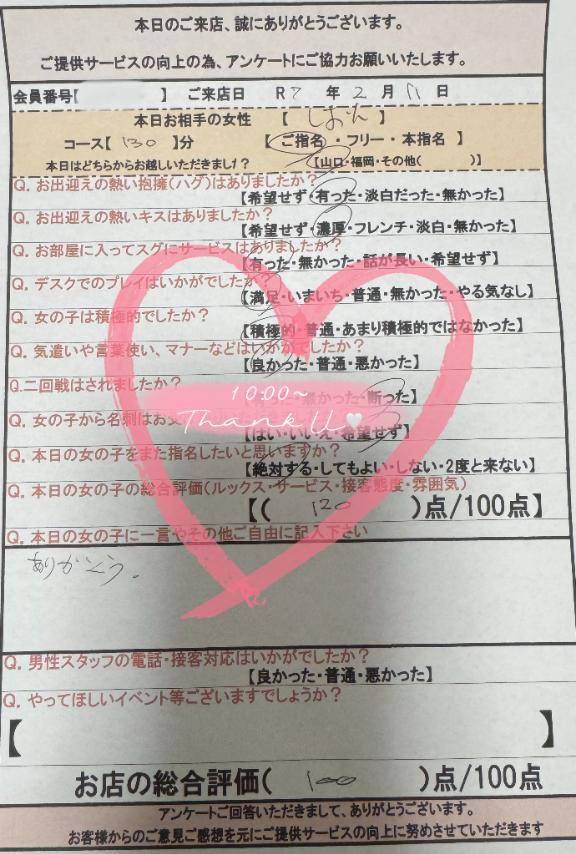 本日のご来店、誠にありがとうございます。
ご提供サービスの向上の為、アンケートにご協力お願いいたします。
会員番号【 】 ご来店日 R7 年 2 月 11 日
本日お相手の女性 【 しおん 】
コース【 130 】分 【 ご指名・フリー・本指名 】
本日はどちらからお越しいただきました? 【山口・福岡・その他( )】
Q. お出迎えの熱い抱擁(ハグ)はありましたか?
【希望せず・有った・淡白だった・無かった】
Q. お出迎えの熱いキスはありましたか?
【希望せず・濃厚・フレンチ・淡白・無かった】
Q. お部屋に入ってスグにサービスはありましたか?
【有った・無かった・話が長い・希望せず】
Q. デスクでのプレイはいかがでしたか?
【満足・いまいち・普通・無かった・やる気なし】
Q. 女の子は積極的でしたか?
【積極的・普通・あまり積極的ではなかった】
Q. 気遣いや言葉使い、マナーなどはいかがでしたか?
【良かった・普通・悪かった】
Q.二回戦はされましたか?
無かった・断った】
10:00~
Thank U♥
Q. 女の子から名刺はお
【はい・いいえ・希望せず】
Q. 本日の女の子をまた指名したいと思いますか?
【絶対する・してもよい・しない・2度と来ない】
Q. 本日の女の子の総合評価(ルックス・サービス・接客態度・雰囲気)
【( 120 )点/100点】
Q. 本日の女の子に一言やその他ご自由に記入下さい
ありがとう.
Q. 男性スタッフの電話・接客対応はいかがでしたか?
【良かった・普通・悪かった】
Q. やってほしいイベント等ございますでしょうか?
【 】
お店の総合評価( 100 )点/100点
アンケートご回答いただきまして、ありがとうございます。
お客様からのご意見ご感想を元にご提供サービスの向上に努めさせていただきます